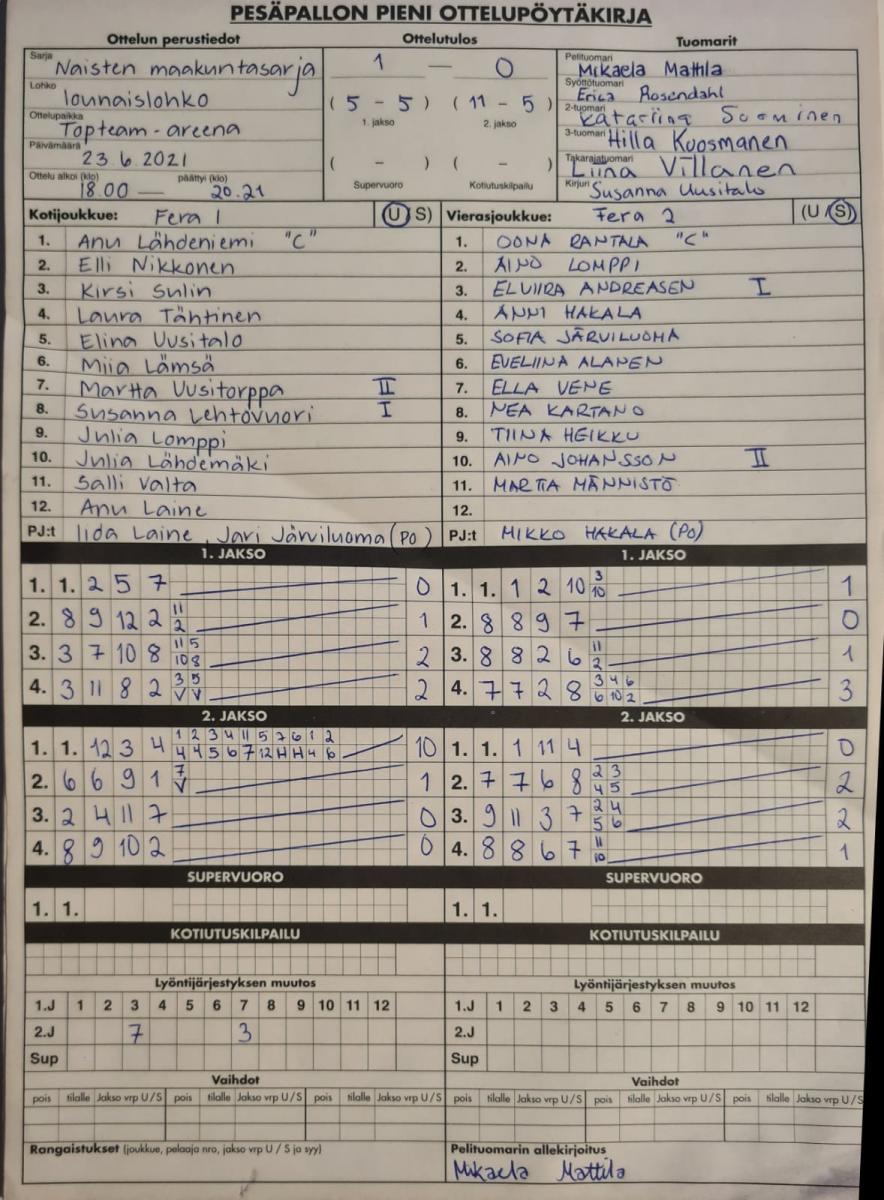 PESÄPALLON PIENI OTTELUPÖYTÄKIRJA
Ottelun perustiedot Ottelutulos Tuomarit
Sarja Naisten maakuntasarja 1 — 0 Pelituomari Mikaela Mattila
Lohko lounaislohko (5 - 5) (11 - 5) Syöttötuomari Erica Rosendahl
Ottelupaikka Topteam-areena 1. jakso 2. jakso 2-tuomari Katariina Suominen
Päivämäärä 23.6.2021 ( - ) ( - ) 3-tuomari Hilla Koosmanen
Ottelu alkoi (klo) 18.00 — päättyi (klo) 20.21 Supervuoro Kotiutuskilpailu Takarajatuomari Liina Villanen
Kirjuri Susanna Uusitalo
Kotijoukkue: Fera 1 (U S) Vierasjoukkue: Fera 2 (U/S)
1. Anu Lähdeniemi "C" 1. OONA RANTALA "C"
2. Elli Nikkonen 2. AINO LOMPPI
3. Kirsi Sulin 3. ELVIIRA ANDREASEN I
4. Laura Tähtinen 4. ANNI HAKALA
5. Elina Uusitalo 5. SOFIA JÄRVILUOMA
6. Miia Lämsä 6. EVELIINA ALANEN
7. Martta Uusitorppa II 7. ELLA VENE
8. Susanna Lehtovuori I 8. NEA KARTANO
9. Julia Lomppi 9. TIINA HEIKKU
10. Julia Lähdemäki 10. AINO JOHANSSON II
11. Salli Valta 11. MARTTA MÄNNISTÖ
12. Anu Laine 12.
PJ:t Iida Laine, Jari Järviluoma (PO) PJ:t MIKKO HAKALA (PO)
1. JAKSO 1. JAKSO
1. 1. 2 5 7 0 1. 1. 1 2 10 3/10 1
2. 8 9 12 2 11/2 1 2. 8 8 9 7 0
3. 3 7 10 8 11/10 5/8 2 3. 8 8 2 6 11/2 1
4. 3 11 8 2 3/V 5/V 2 4. 7 7 2 8 3/6 4/10 6/2 3
2. JAKSO 2. JAKSO
1. 1. 12 3 4 1/4 2/4 3/5 4/6 11/7 5/12 7/H 6/H 1/4 2/6 10 1. 1. 1 11 4 0
2. 6 6 9 1 7/V 1 2. 7 7 6 8 2/4 3/5 2
3. 2 4 11 7 0 3. 9 11 3 7 2/5 4/6 2
4. 8 9 10 2 0 4. 8 8 6 7 11/10 1
SUPERVUORO SUPERVUORO
1. 1. 1. 1.
KOTIUTUSKILPAILU KOTIUTUSKILPAILU
Lyöntijärjestyksen muutos Lyöntijärjestyksen muutos
1.J 1 2 3 4 5 6 7 8 9 10 11 12 1.J 1 2 3 4 5 6 7 8 9 10 11 12
2.J 7 3 2.J
Sup Sup
Vaihdot Vaihdot
pois tilalle Jakso vrp U/S pois tilalle Jakso vrp U/S pois tilalle Jakso vrp U/S pois tilalle Jakso vrp U/S pois tilalle Jakso vrp U/S pois tilalle Jakso vrp U/S
Rangaistukset (joukkue, pelaaja nro, jakso vrp U / S ja syy) Pelituomarin allekirjoitus
Mikaela Mattila